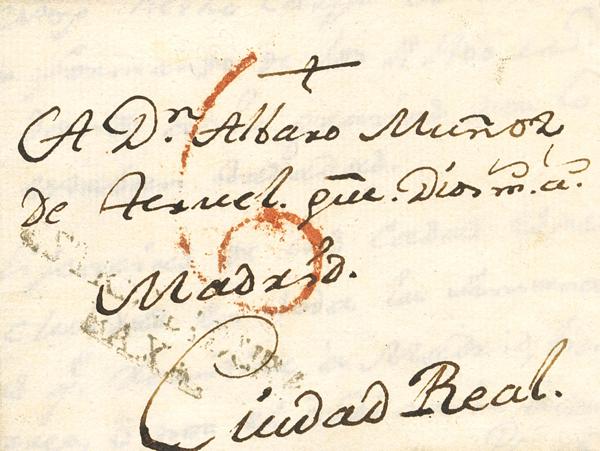 A Dn. Albaro Muñoz
De Teruel. gue. Dios m. a.
Madrid.
Ciudad Real.
BAXA
6